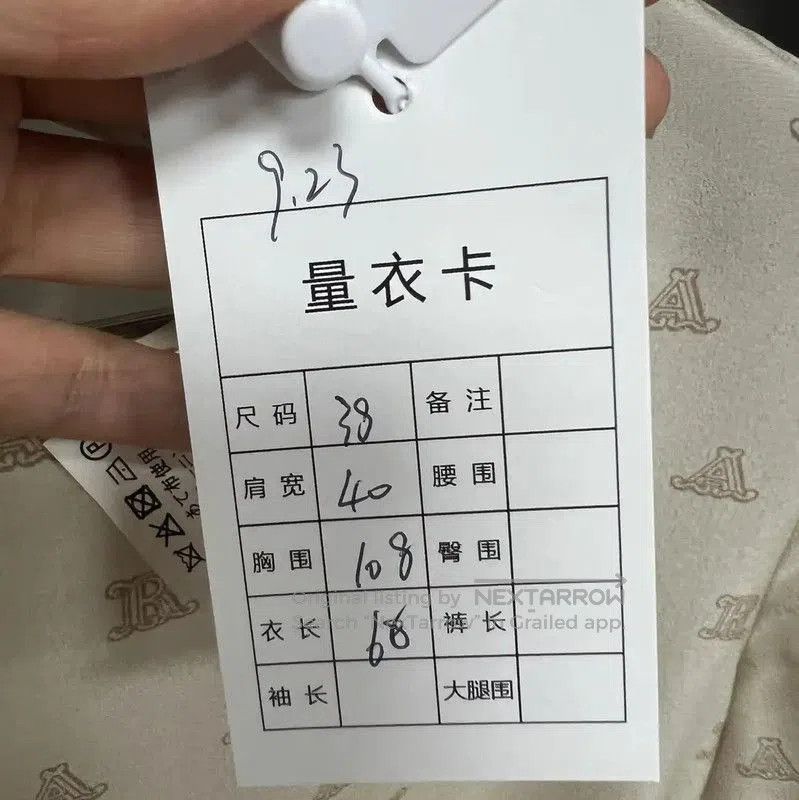 9.23
量衣卡
尺码 38 备注
肩宽 40 腰围
胸围 108 臀围
衣长 68 裤长
袖长 大腿围
Original listing by NEXTARROW
Search "NexTarrow" in Grailed app
あて布使用
A
A
B
A
A